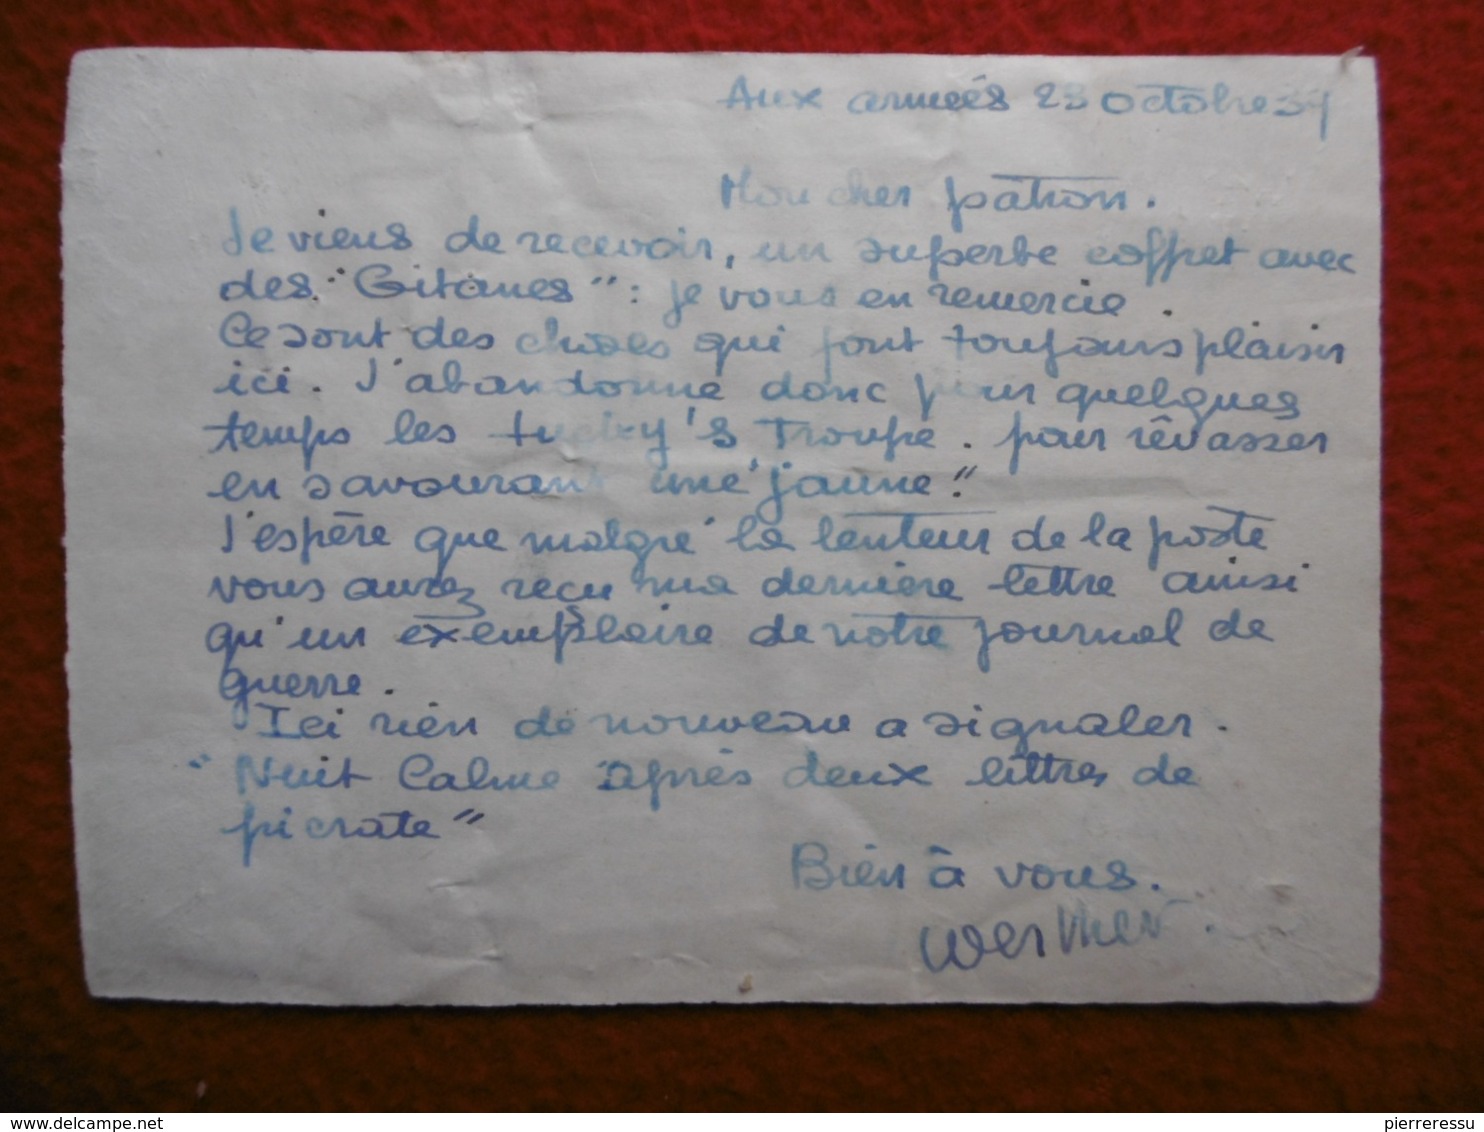 Aux armées 23 octobre 39
Mon cher patron.
Je viens de recevoir, un superbe coffret avec
des "Gitanes" : je vous en remercie.
Ce sont des choses qui font toujours plaisir
ici. J'abandonne donc pour quelques
temps les Troupe. pour rêvasser
en savourant une "jaune".
J'espère que malgré la lenteur de la poste
vous aurez reçu ma dernière lettre ainsi
qu'un exemplaire de notre journal de
guerre.
Ici rien de nouveau a signaler.
"Nuit Calme après deux littres de
picrate"
Bien à vous.
delcampe.net
pierreressu